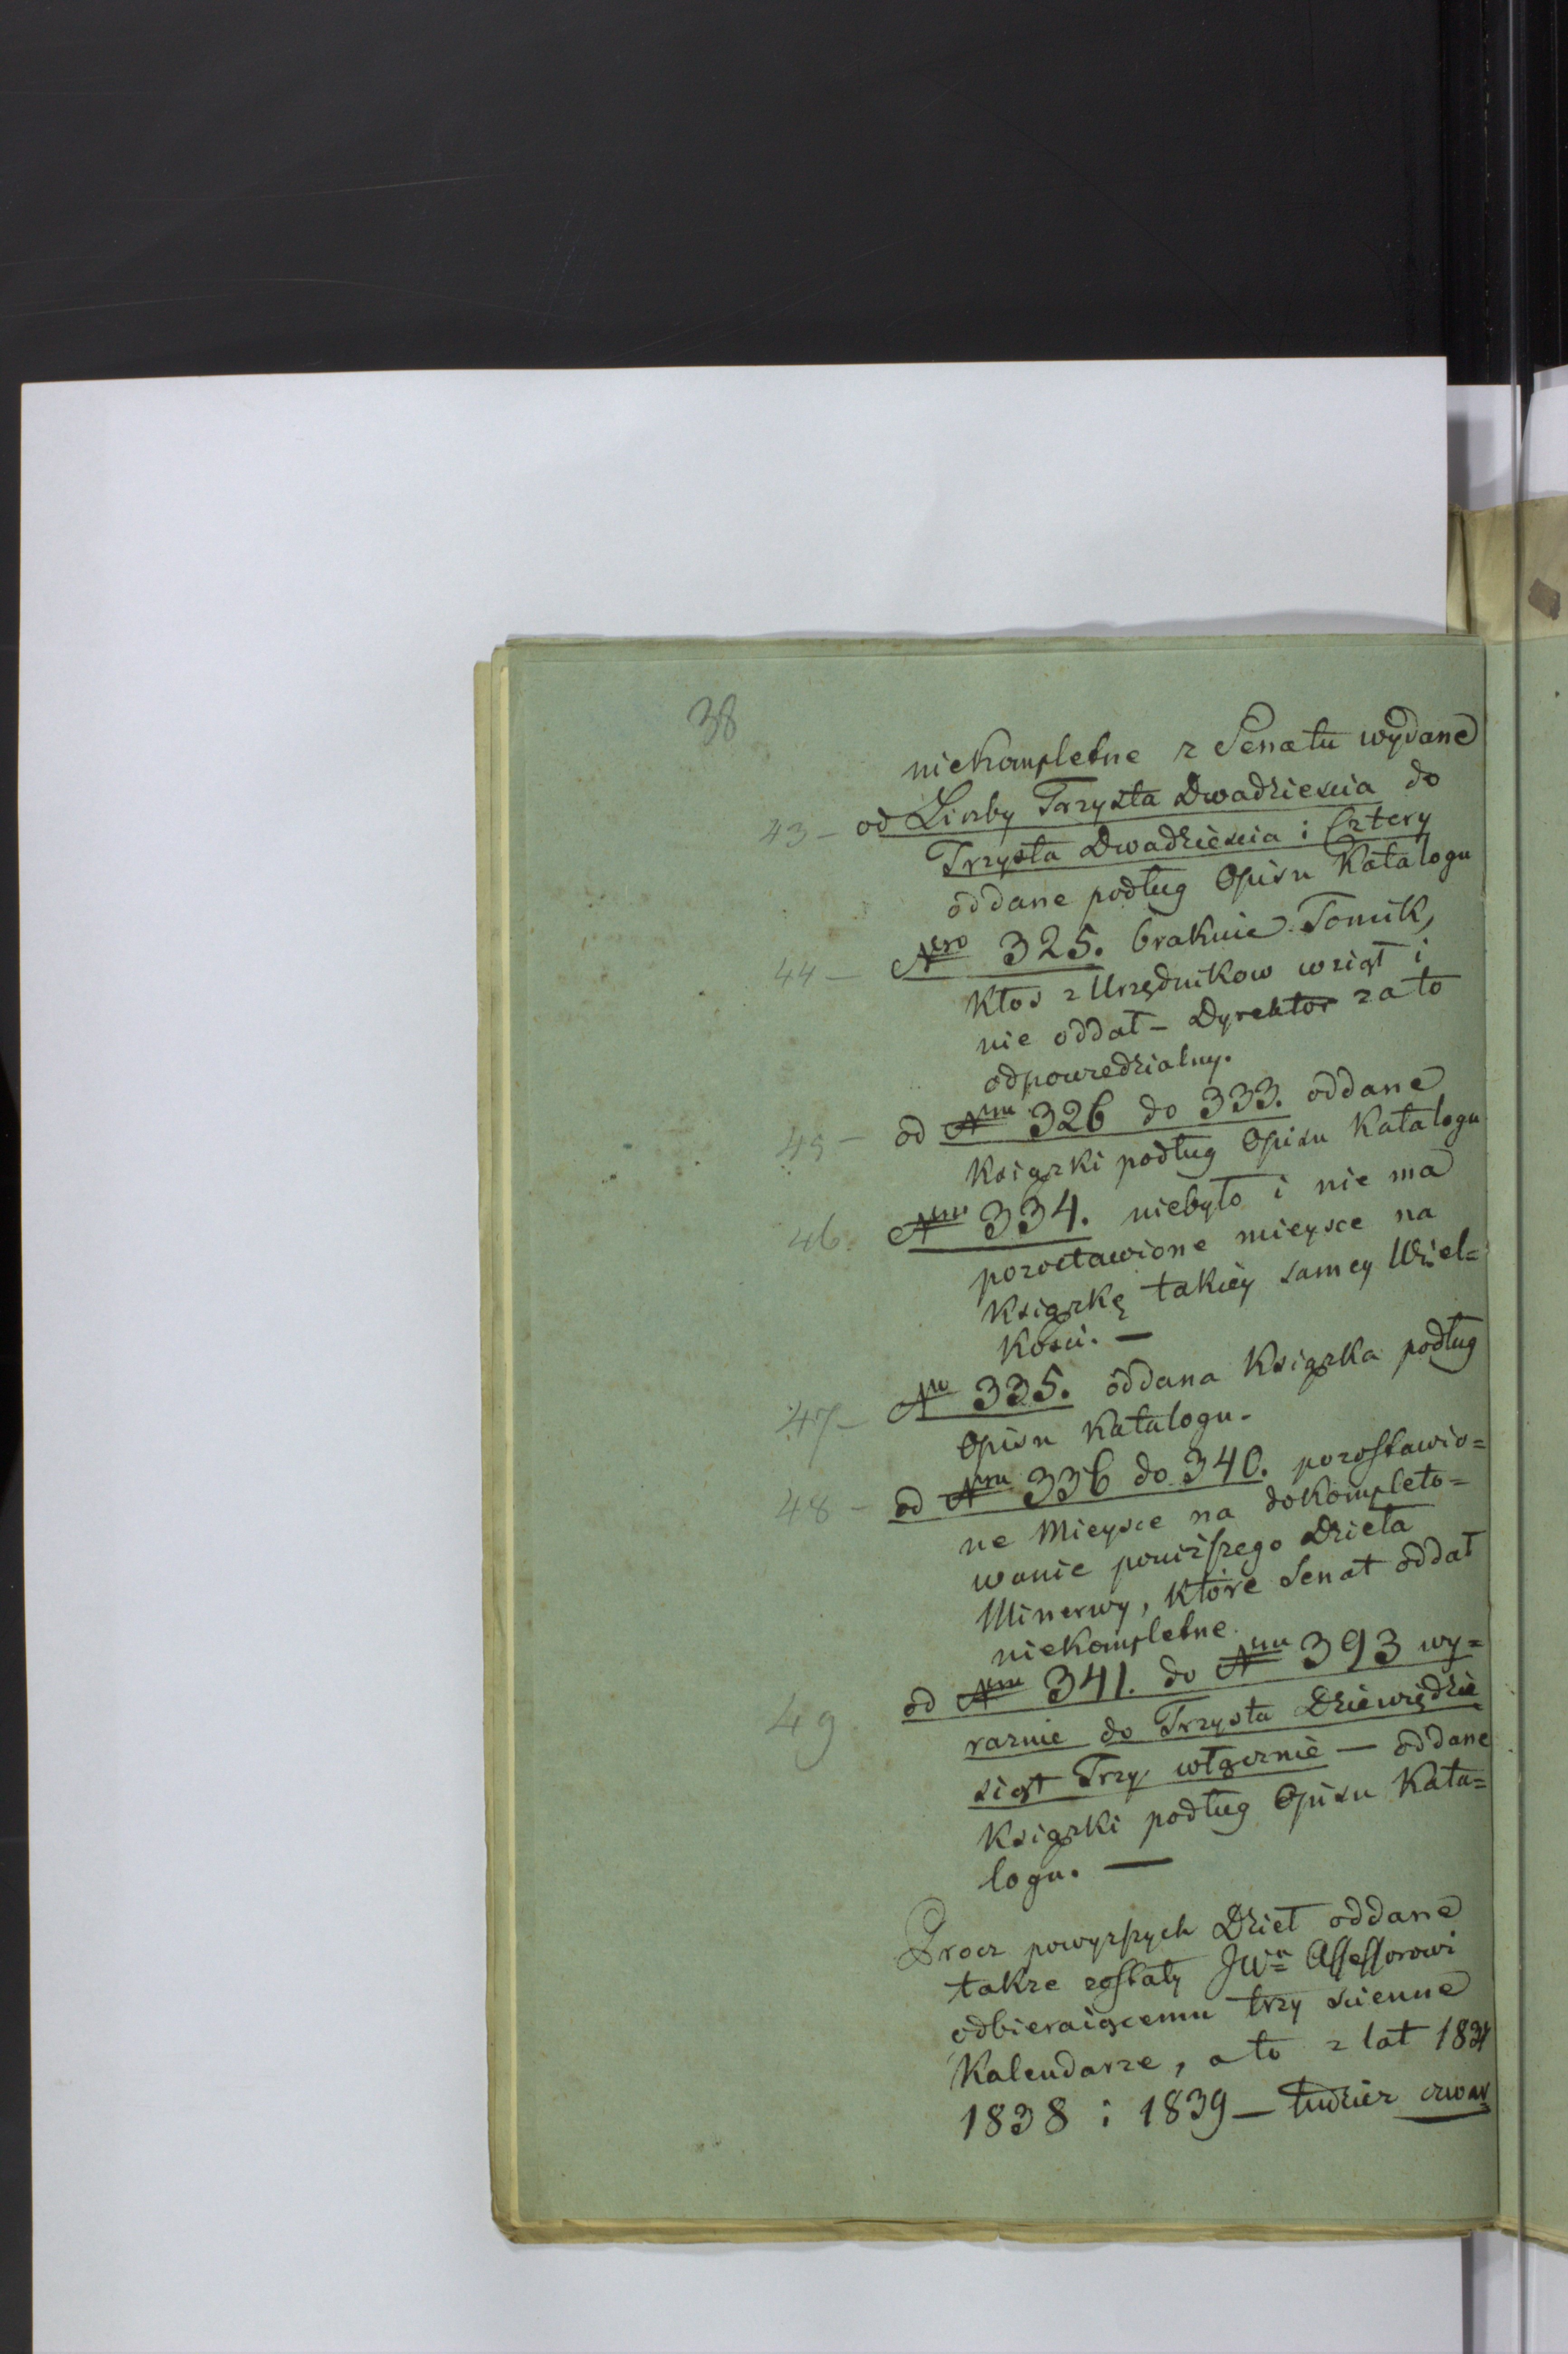 38
niekompletne z Senatu wydane
43 – od Liczby Trzysta Dwadziescia do
Trzysta Dwadziescia i Cztery
oddane podług Opisu Katalogu
44 – Nro 325. braknie Tomik,
Ktos z Urzędnikow wziął i
nie oddał – Dyrektor za to
odpowiedzialny.
45 – od Nru 326 do 333. oddane
Ksiązki podług Opisu Katalogu
46. Nru 334. niebyło i nie ma
pozostawione mieysce na
Ksiązkę takiey samey Wiel=
kosci. —
47 – No 335. oddana Ksiązka podług
Opisu Katalogu.
48 – od Nru 336 do 340. pozostawio=
ne Mieysce na dokompleto=
wanie powiższego Dzieła
Minerwy, które Senat oddał
niekompletne.
49 od Nru 341. do Nru 393 wy=
raznie do Trzysta Dziewiędzie
siąt Trzy włącznie — oddane
Ksiązki podług Opisu Kata=
logu. —
Procz powyzszych Dzieł oddane
takze zostały JWu Assessorowi
odbieraiącemu trzy scienne
Kalendarze, a to z lat 1837
1838 i 1839 – tudziez czwar